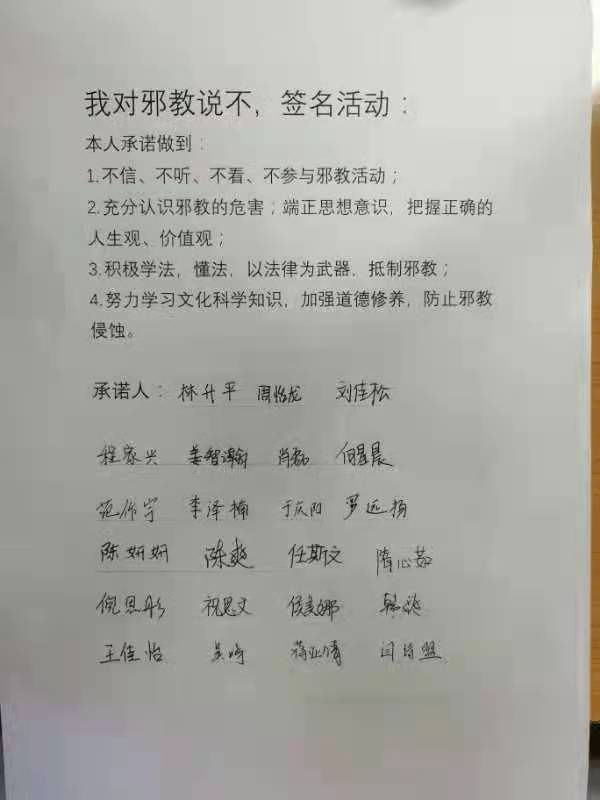 我对邪教说不，签名活动：
本人承诺做到：
1.不信、不听、不看、不参与邪教活动；
2.充分认识邪教的危害；端正思想意识，把握正确的
人生观、价值观；
3.积极学法，懂法，以法律为武器，抵制邪教；
4.努力学习文化科学知识，加强道德修养，防止邪教
侵蚀。
承诺人：林升平 周怡龙 刘佳松
程家兴 姜智瀚 肖磊
李泽楠 于庆阳 罗远扬
陈妍妍 陈爽 任斯文 隋心茹
倪思彤 祝思文
王佳怡 吴琦 蒋亚倩